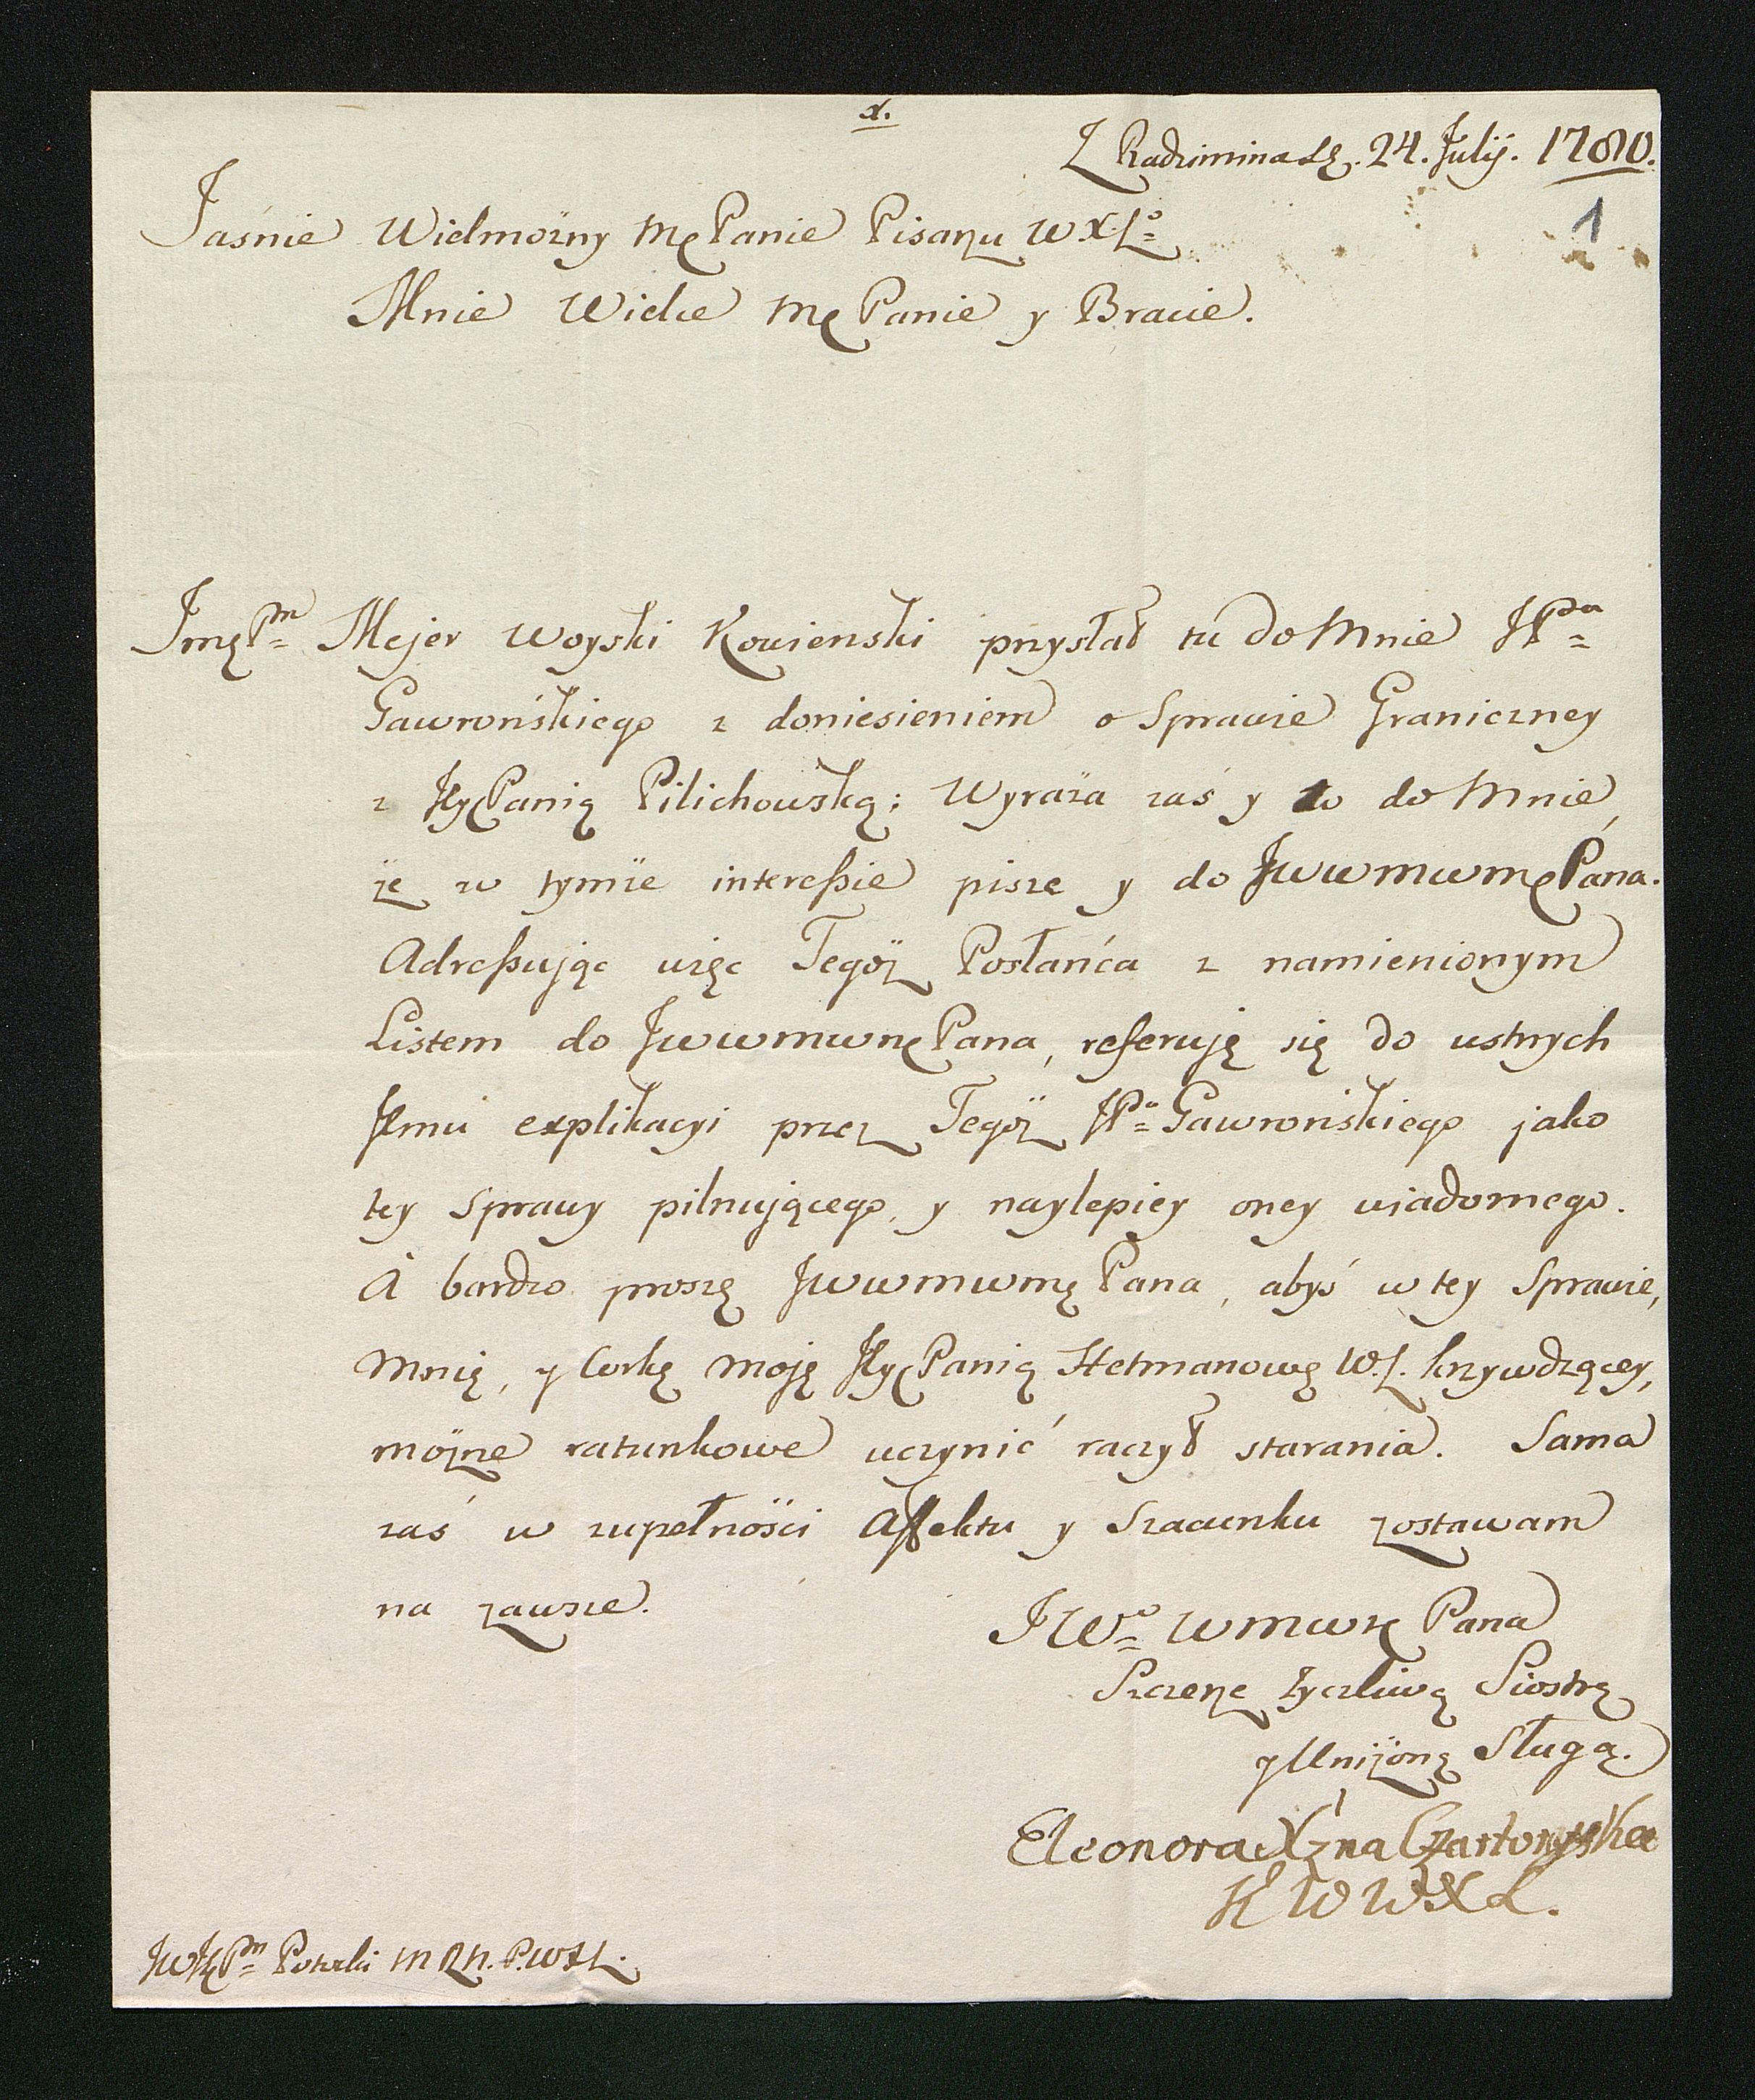 x.
Z Radzimina d. 24. Julij. 1780.
1
Jaśnie Wielmożny Mc Panie Pisarzu W.X.Lo
Mnie Wielce Mc Panie y Bracie.
Jmc Pan Mejer Woyski Kowienski przysłał tu do Mnie JPa
Gawrońskiego z doniesieniem o Sprawie Graniczney
z Jey Panią Pilichowską; Wyraża zaś y to do Mnie,
że w tymże interessie pisze y do JWWMWMc Pana.
Adressując więc Tegoż Posłańca z namienionym
Listem do JWWMWMc Pana, referuję się do ustnych
Jemu explikacyi przez Tegoż JPa Gawrońskiego jako
tey Sprawy pilnującego, y naylepiey oney wiadomego.
A bardzo proszę JWWMWMc Pana, abyś w tey Sprawie,
Mnię, y Corkę moję Jey Panią Hetmanowę W.L. krzywdzącey,
możne ratunkowe uczynić raczył starania. Sama
zaś w zupełności Affektu y Szacunku zostawam
na zawsze.
JWo WMWMc Pana
Szczerze życzliwą Siostrą
y Uniżoną Sługą.
Eleonora Xzna Czartoryska
K W W X L.
JWJc Pan Potocki P.WXL.